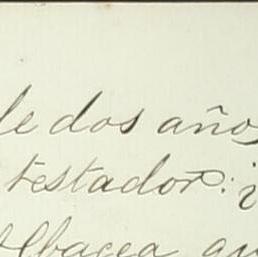 de dos años
testador: i
Albacea qu